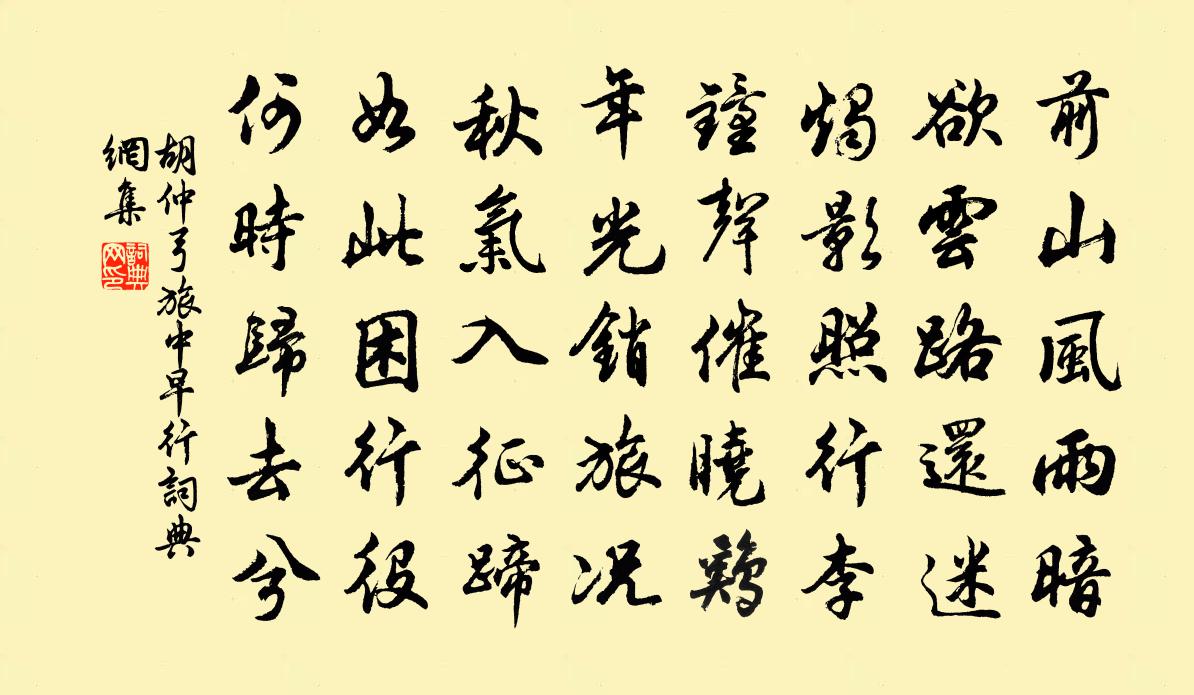 前山風雨暗
欲雲路還迷
燭影照行李
鐘聲催曉鷄
年光銷旅况
秋氣入征蹄
如此困行役
何時歸去兮
胡仲弓旅中早行詞典
網集
詞典
网印